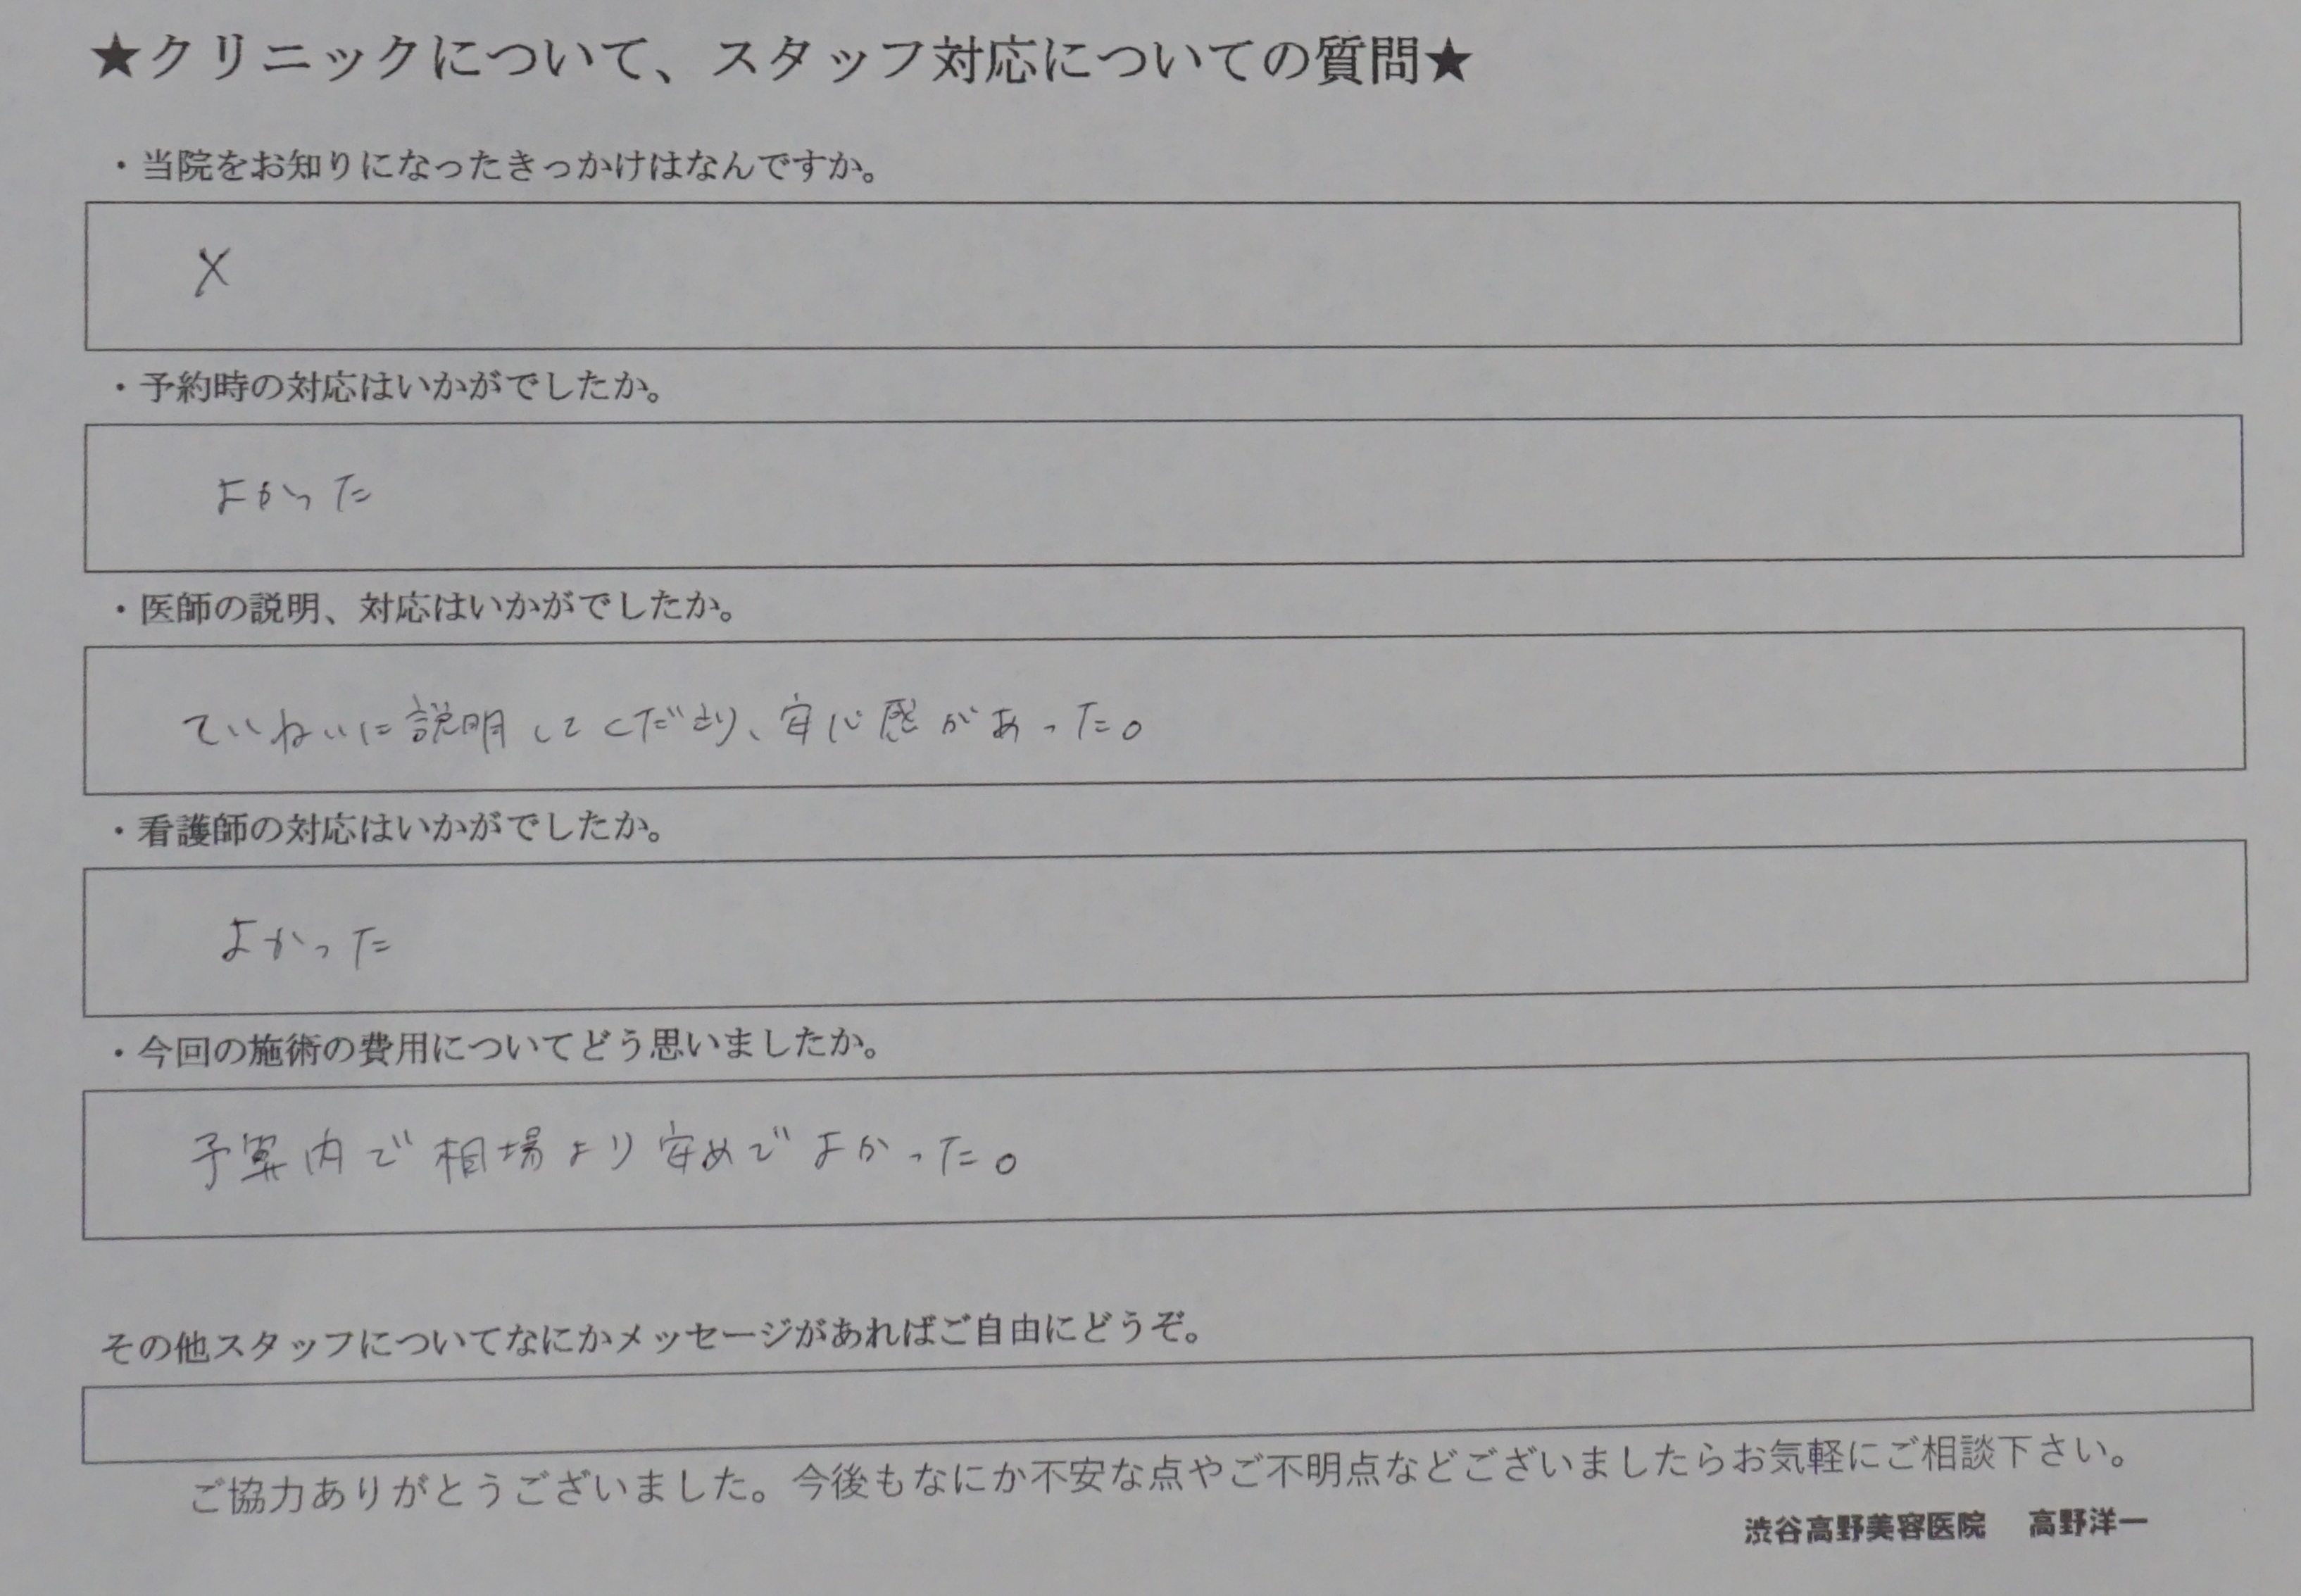 ★クリニックについて、スタッフ対応についての質問★
・当院をお知りになったきっかけはなんですか。
X
・予約時の対応はいかがでしたか。
よかった
・医師の説明、対応はいかがでしたか。
ていねいに説明してくださり、安心感があった。
・看護師の対応はいかがでしたか。
よかった
・今回の施術の費用についてどう思いましたか。
予算内で相場より安めでよかった。
その他スタッフについてなにかメッセージがあればご自由にどうぞ。
ご協力ありがとうございました。今後もなにか不安な点やご不明点などございましたらお気軽にご相談下さい。
渋谷高野美容医院 高野洋一